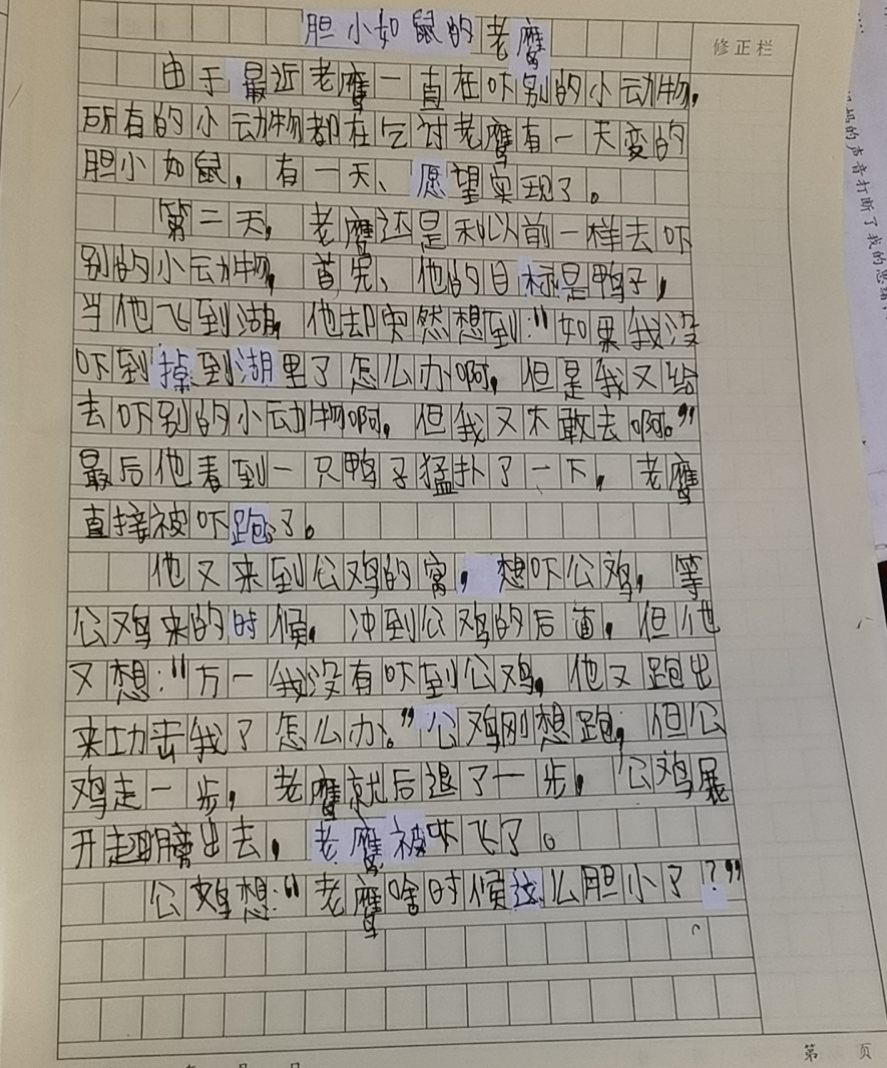 胆小如鼠的老鹰
修正栏
由于最近老鹰一直在吓别的小动物,
所有的小动物都在乞讨老鹰有一天变的
胆小如鼠,有一天、愿望实现了。
第二天,老鹰还是和以前一样去吓
别的小动物,首先、他的目标是鸭子,
当他飞到湖,他却突然想到:"如果我没
吓到掉到湖里了怎么办啊,但是我又给
去吓别的小动物啊,但我又不敢去啊。"
最后他看到一只鸭子猛扑了一下,老鹰
直接被吓跑了。
他又来到公鸡的窝,想吓公鸡,等
公鸡来的时候,冲到公鸡的后面,但他
又想:"万一我没有吓到公鸡,他又跑出
来功击我了怎么办。"公鸡刚想跑,但公
鸡走一步,老鹰就后退了一步,公鸡展
开翅膀出去,老鹰被吓飞了。
公鸡想:"老鹰啥时候这么胆小了?"
妈的声音打断了我的思绪
第 页